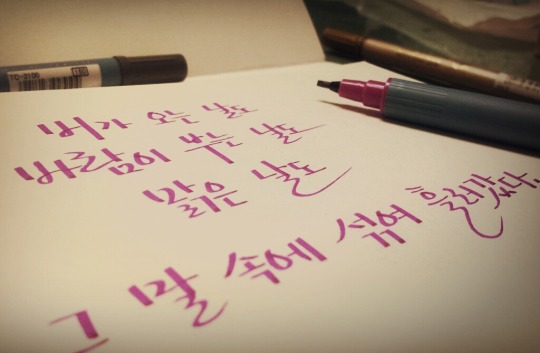 TC-3100
비가 오는 날도
바람이 부는 날도
맑은 날도
그 말 속에 섞여 흘러갔다.